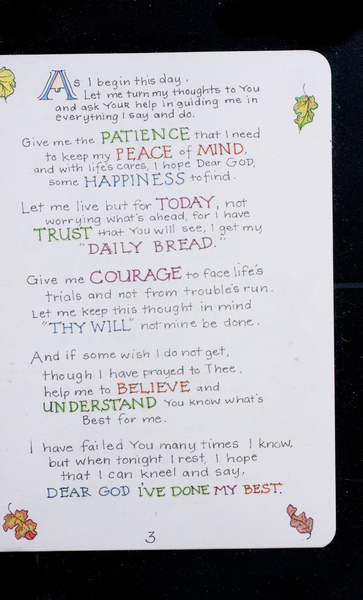 As I begin this day.
Let me turn my thoughts to You
and ask Your help in guiding me in
everything I say and do.
Give me the PATIENCE that I need
to keep my PEACE of MIND,
and with life's cares, I hope Dear God,
some HAPPINESS to find.
Let me live but for TODAY, not
worrying what's ahead, for I have
TRUST that You will see, I get my
"DAILY BREAD."
Give me COURAGE to face life's
trials and not from trouble's run.
Let me keep this thought in mind
"THY WILL" not mine be done.
And if some wish I do not get,
though I have prayed to Thee.
help me to BELIEVE and
UNDERSTAND You know what's
Best for me.
I have failed You many times I know,
but when tonight I rest, I hope
that I can kneel and say,
DEAR GOD I'VE DONE MY BEST.
3